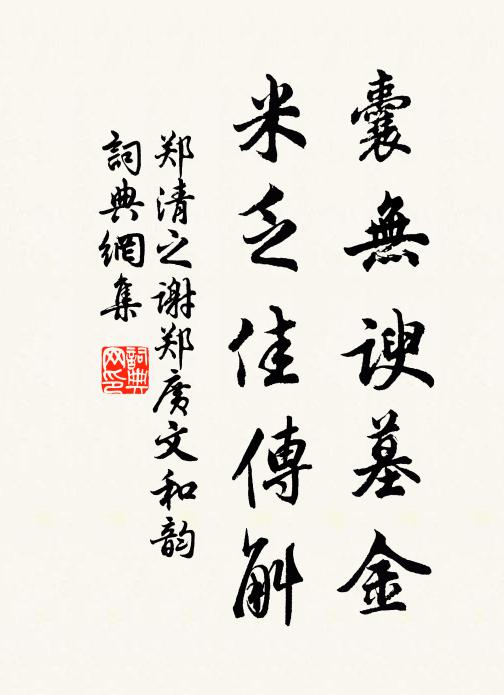 囊無諛墓金
米乏佳傳斛
郑清之谢郑廣文和韵
詞典網集
詞典
网印